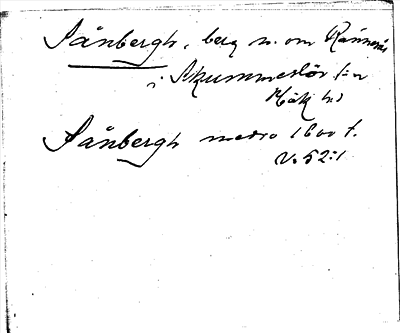 Sånbergh, berg n. om Rännesås
i Skummeslöv s:n
Hök hd
Sånbergh medio 1600 t.
V. 52:1